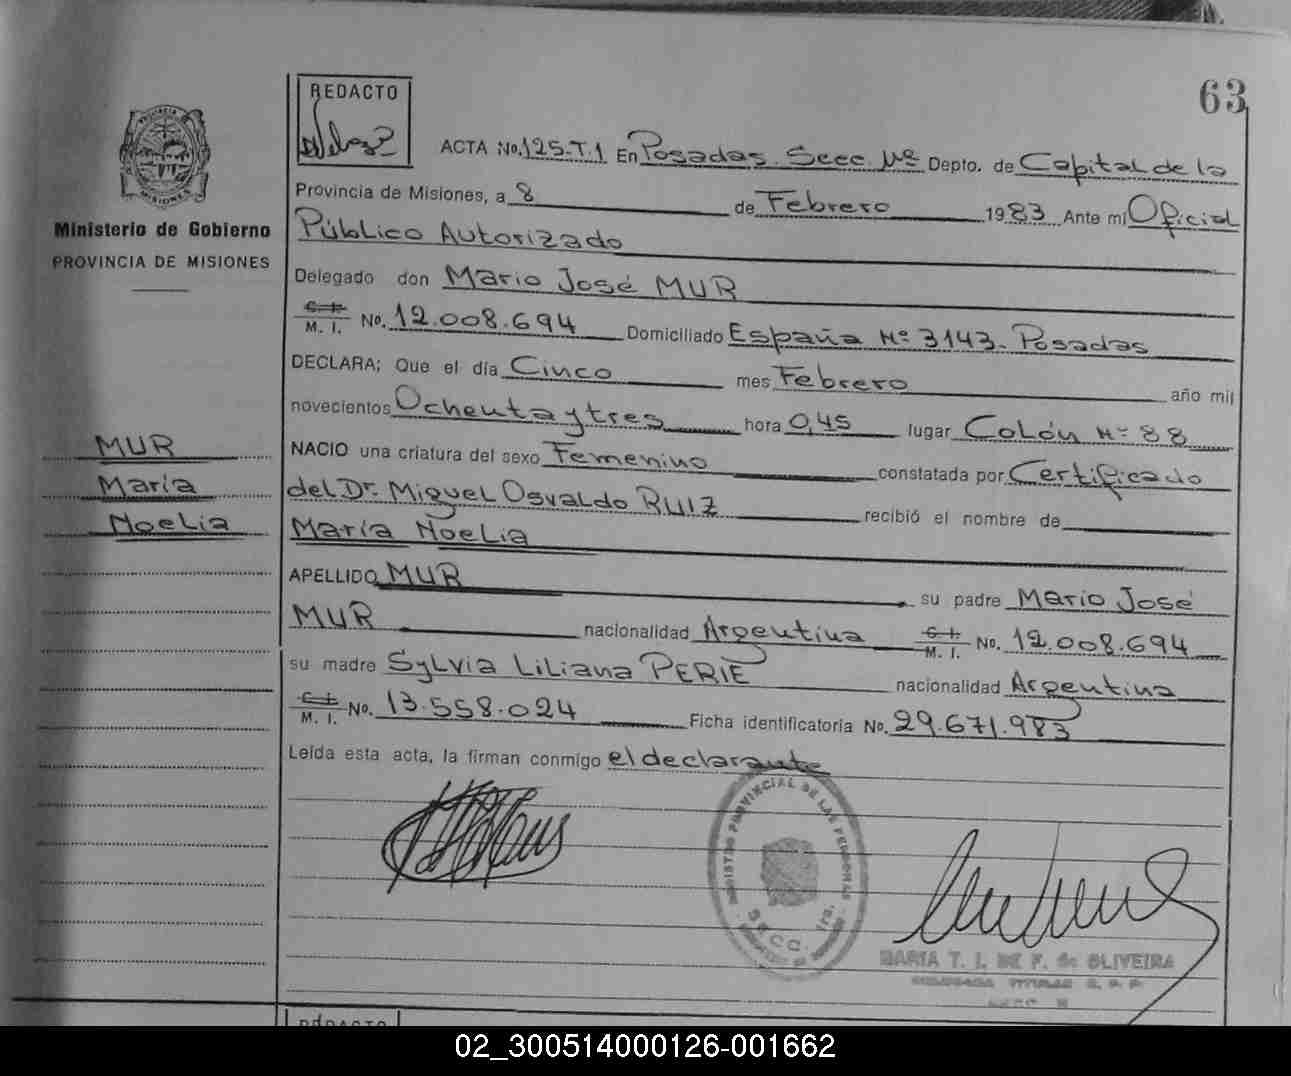 63
REDACTO
ACTA No. 125-T.1 En Posadas. Secc. Nº Depto. de Capital de la
Provincia de Misiones, a 8 de Febrero 1983 Ante mí Oficial
Público Autorizado
PROVINCIA
MISIONES
Ministerio de Gobierno
PROVINCIA DE MISIONES
Delegado don Mario José MUR
C. I.
M. I. No. 12.008.694 Domiciliado España Nº 3143. Posadas
DECLARA; Que el día Cinco mes Febrero año mil
novecientos Ochenta y tres hora 0,45 lugar Colón Nº 88
NACIO una criatura del sexo Femenino constatada por Certificado
del Dr. Miguel Osvaldo RUIZ recibió el nombre de
María Noelia
MUR
María
Noelia
APELLIDO MUR su padre Mario José
MUR nacionalidad Argentina C. I. M. I. No. 12.008.694
su madre Sylvia Liliana PERIE nacionalidad Argentina
C. I.
M. I. No. 13.558.024 Ficha identificatoria No. 29.671.983
Leída esta acta, la firman conmigo el declarante
REGISTRO PROVINCIAL DE LAS PERSONAS
SECC. 1ra.
MARIA T. I. DE F. de OLIVEIRA
REDACTO
02_300514000126-001662